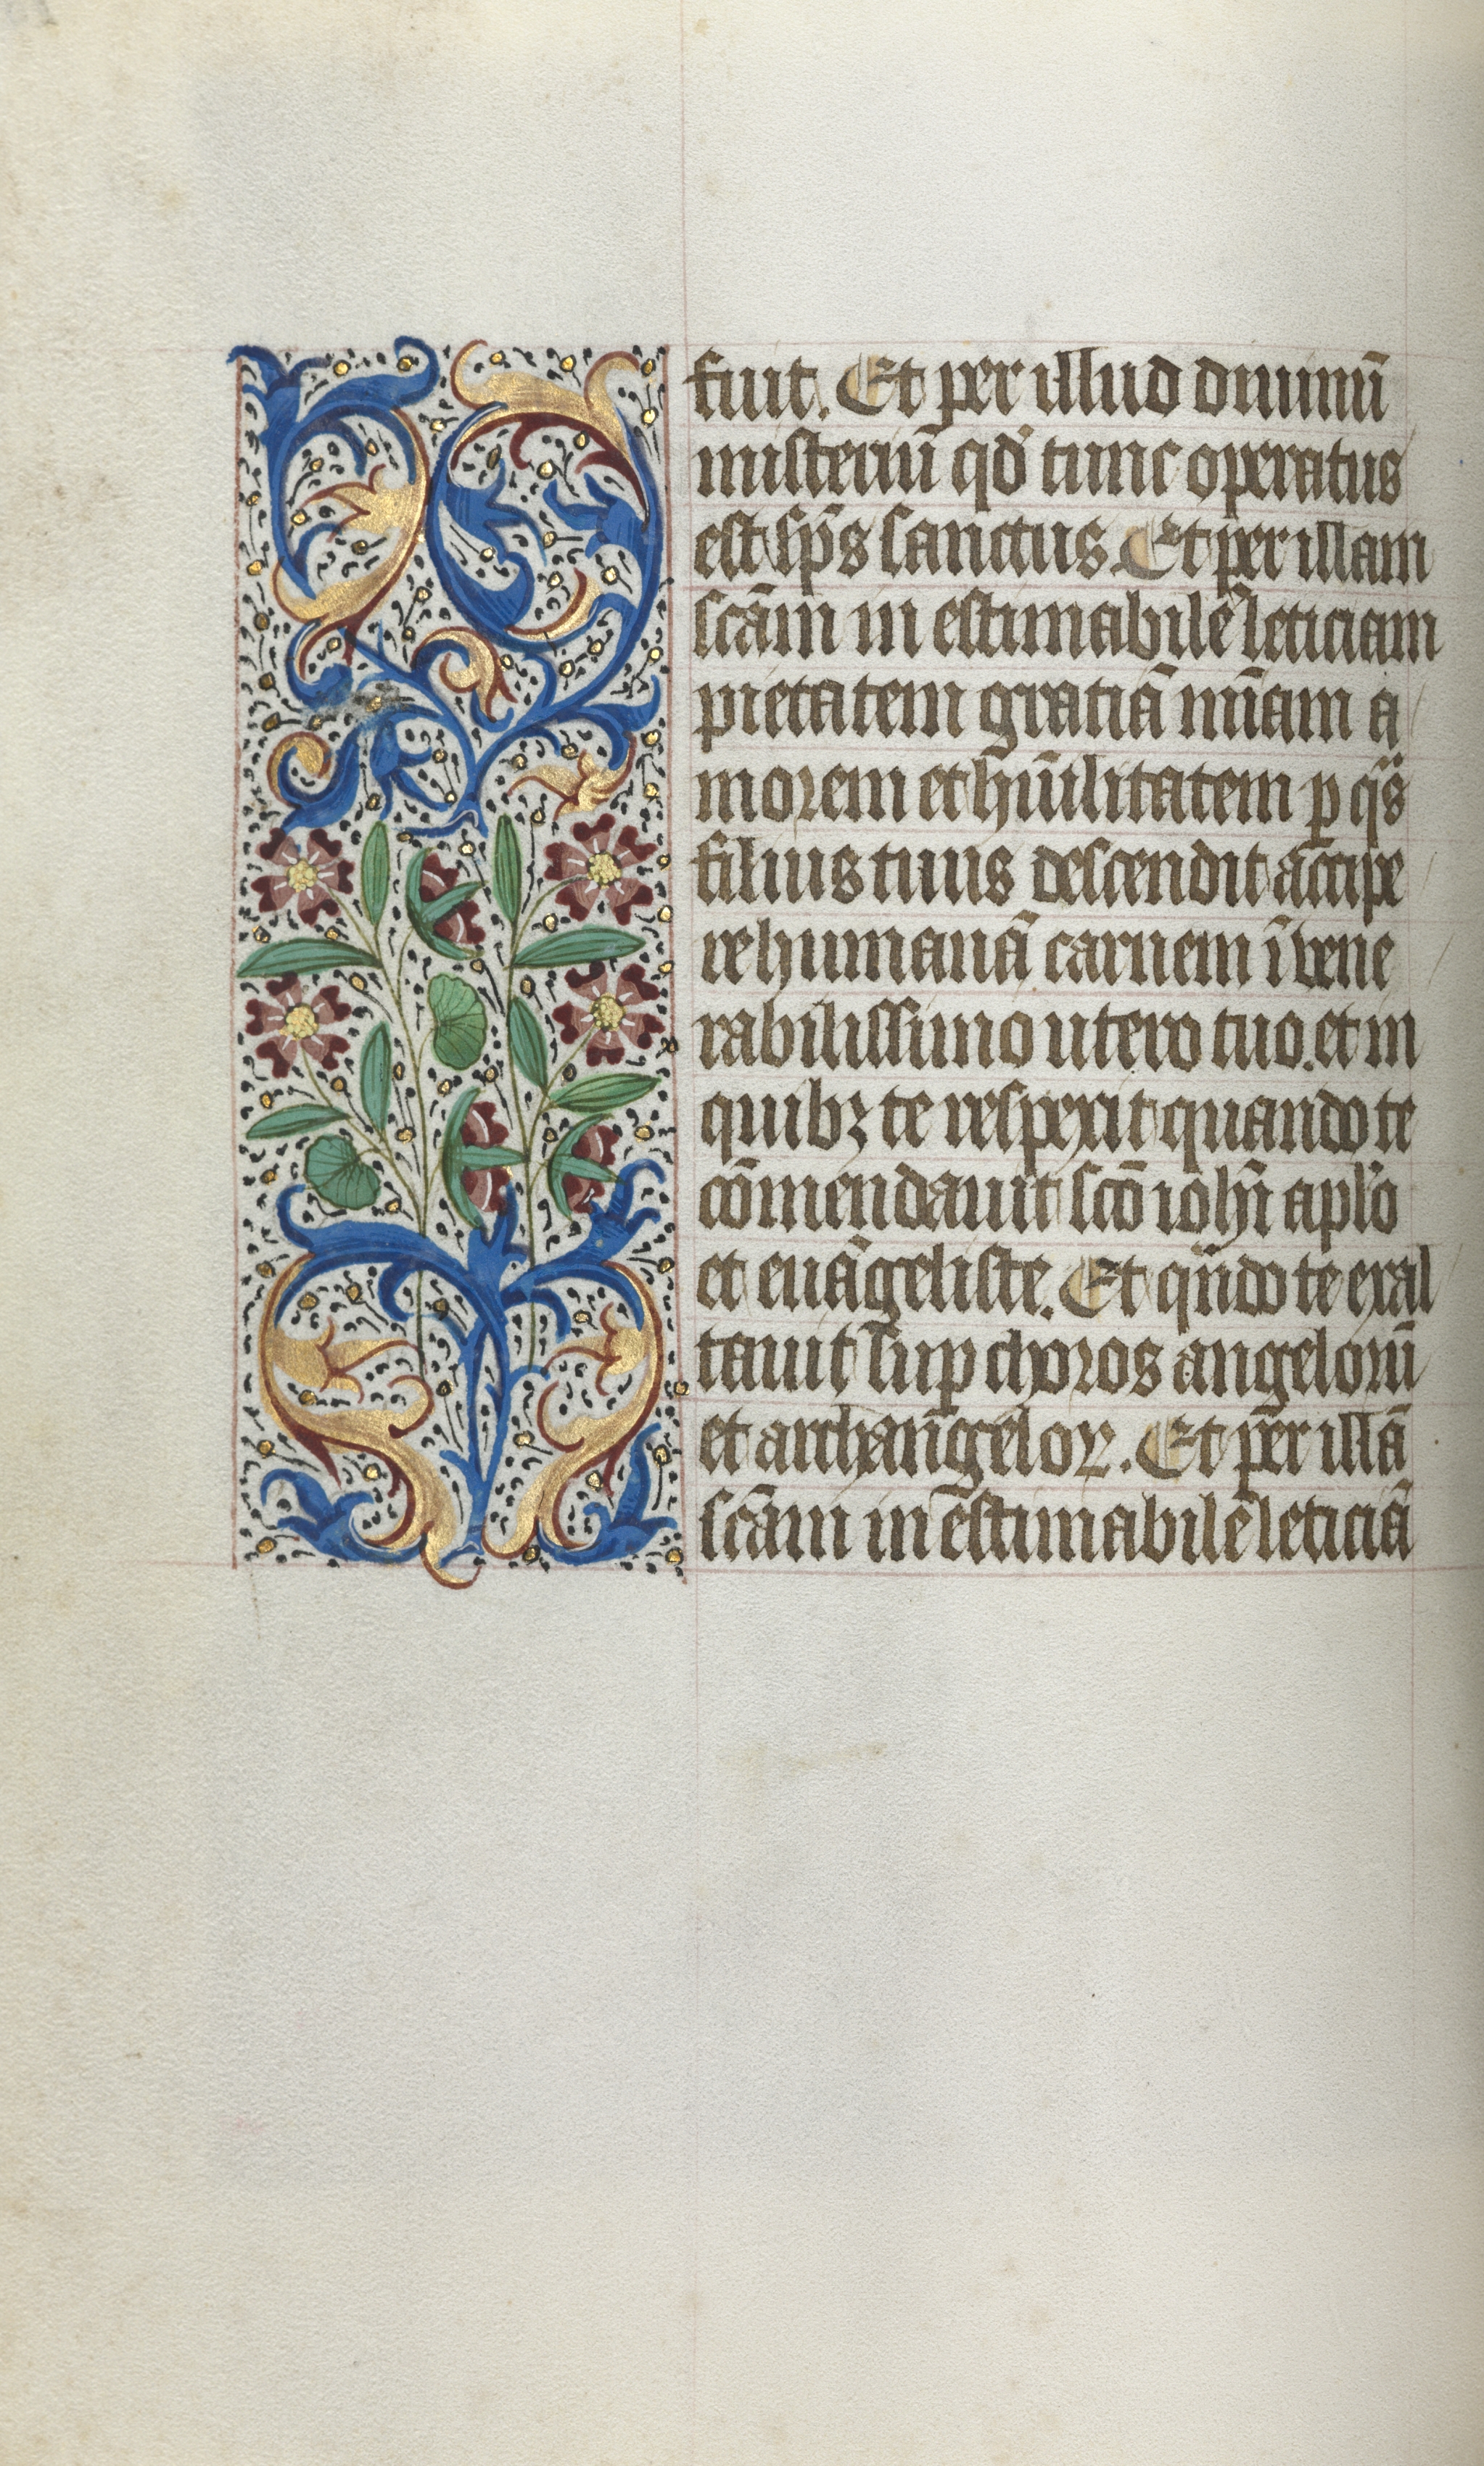 fuit. Et per illud diuinū
misteriū qd̓ tunc operatus
est sp̄s sanctus. Et per illam
scām in estimabilē leticiam
pietatem gratiā mīam a
morem et hūilitatem p qͣs
filius tuus descendit accipe
re humanā carnem ī vene
rabilissimo utero tuo. et in
quibꝫ te respexit quando te
cōmendauit scō iohī apl̓o
et euāgeliste. Et qn̄do te exal
tauit suꝑ choros angelorū
et archangeloꝝ. Et per illā
scām in estimabilē leticiā